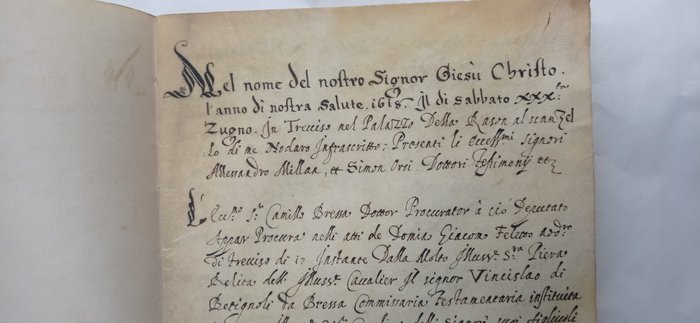 Nel nome del nostro Signor Giesù Christo.
l'anno di nostra Salute. 1618. Il di Sabbato XXX.
Zugno. In Treviso nel Palazzo Della Rason al scanzel
lo di me Nodaro Infrascritto: Presenti li Eccell.mi Signori
Allessandro Millan, et Simon Orsi Dottori Testimonij etc
L'Ecc.mo S.r Camillo Bressa Dottor Procurator à ciò Deputato
Appar Procura nelli atti de Domino Giacomo Feletto nod.ro
di Treviso di 17 Instante Dalla Molto Illus.re S.ra Pieva
Relita dell' Illus.re Cavalier Il signor Vincislao di
Betignoli da Bressa Commissaria Testamentaria instituita
delli signori suoi figliuoli